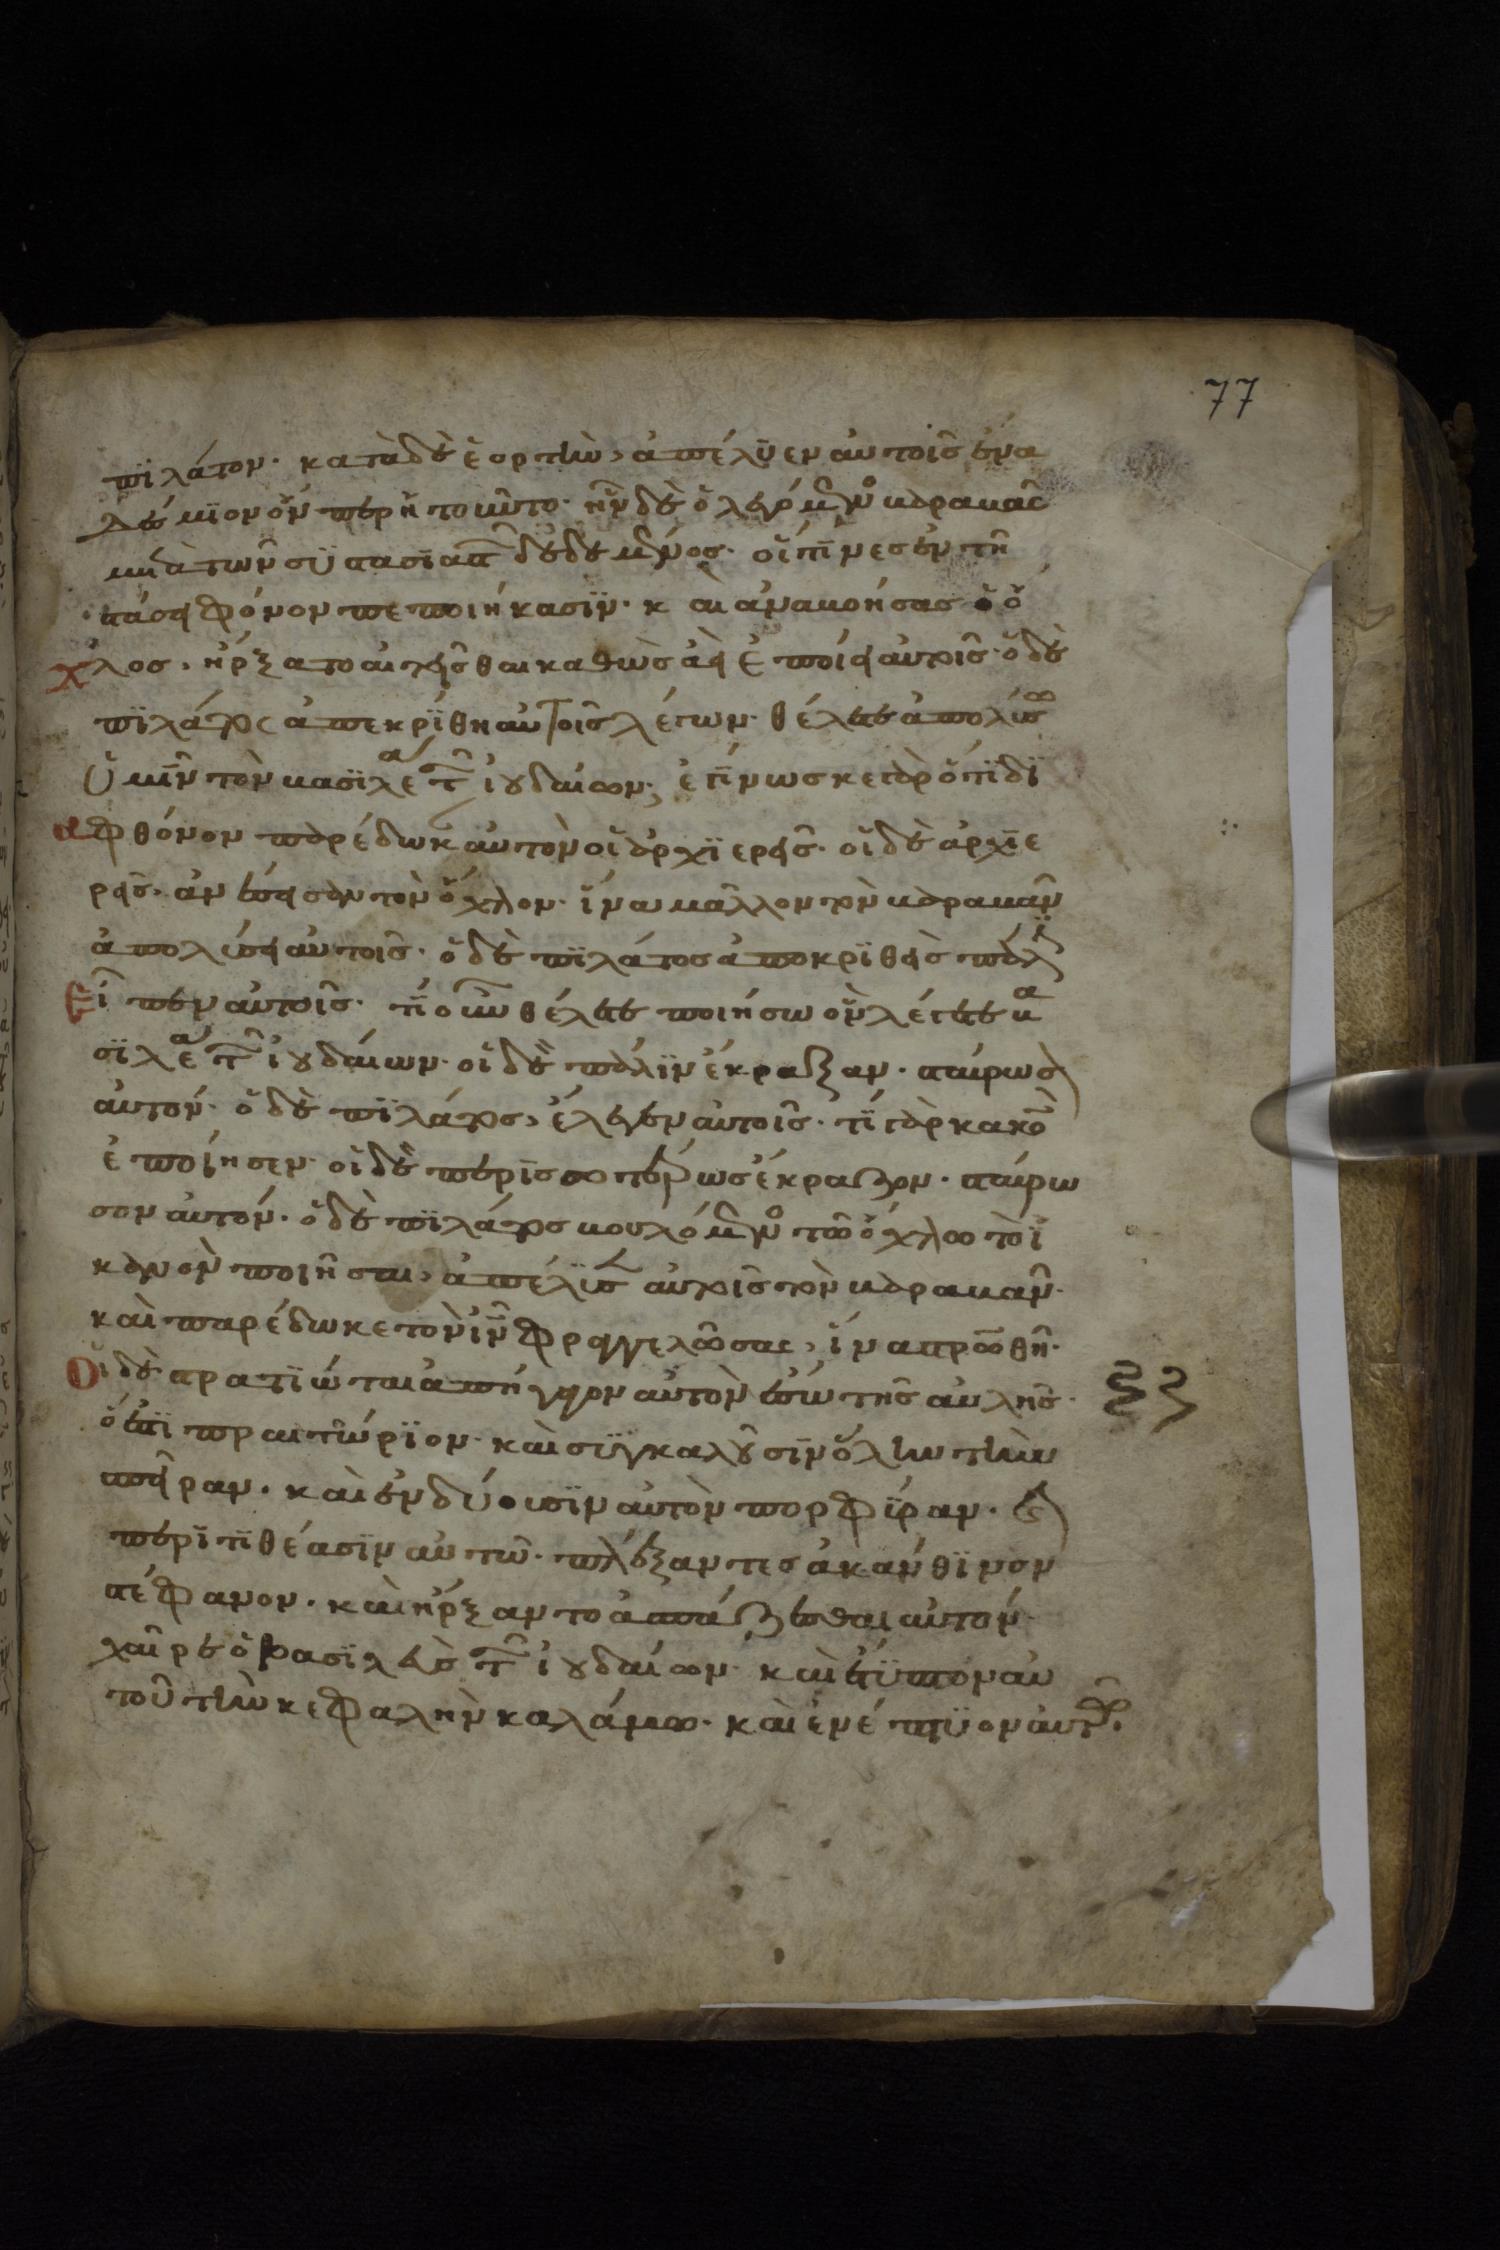 77
πϊλάτον· κατὰ δὲ ἑορτὴν, ἀπέλϋεν αὐτοῖς ἕνα
δέσμϊον ὅνπερ ἠτοῦντο· ἦν δὲ ὁ λεγόμενος βαραββᾶς
μετὰ τῶν συστασϊαστῶν δεδεμένος· οἵτϊνες ἐν τῆ
στάσει φόνον πεποιήκασϊν· καὶ ἀναβοήσας ὁ ὄ
χλος, ἤρξατο αἰτεῖσθαι καθὼς ἀεὶ ἐποίει αὐτοῖς· ὁ δὲ
πϊλάτος ἀπεκρϊθη αὐτοῖς λέγων· θέλετε ἀπολύσω
ὑμῖν τὸν βασϊλέα τῶν ἰουδαίων; ἐγϊνωσκε γὰρ ὅτϊ δϊ
α φθόνον παρέδωκαν αὐτὸν οἱ ἀρχϊερεῖς· οἱ δὲ ἀρχϊε
ρεῖς· ἀνέσεισαν τὸν ὄχλον· ἵνα μᾶλλον τὸν βαραββᾶν
ἀπολύσει αὐτοῖς· ὁ δὲ πϊλάτος ἀποκρϊθεὶς πάλϊν
εἶπεν αὐτοῖς· τί οὖν θέλετε ποιήσω ὃν λέγετε βα
σϊλέα τῶν ἰουδαίων· οἱ δὲ πάλϊν ἔκραξαν· σταύρωσον
αὐτόν· ὁ δὲ πϊλάτος, ἔλεγεν αὐτοῖς· τί γὰρ κακὸν
ἐποίησεν· οἱ δὲ περϊσσοτέρως ἔκραζον· σταύρω
σον αὐτόν· ὁ δὲ πϊλάτος βουλόμενος τῶ ὄχλω τὸ ἱ
κανὸν ποιῆσαι, ἀπέλϋσεν αὐτοῖς τὸν βαραββᾶν·
καὶ παρέδωκε τὸν ιν φραγγελώσας, ἵνα σταρωθῆ·
Οἱ δὲ στρατϊῶται ἀπήγαγον αὐτὸν ἔσω τῆς αὐλῆς·
ὅ ἐστϊ πραιτώρϊον· καὶ συγκαλοῦσϊν ὅλην τὴν
σπεῖραν· καὶ ἐνδύουσϊν αὐτὸν πορφύραν· καὶ
περϊτϊθέασϊν αὐτῶ· πλέξαντες ἀκάνθϊνον
στέφανον· καὶ ἤρξαντο ἀσπάζεσθαι αὐτόν·
χαῖρε ὁ βασϊλεὺς τῶν ἰουδαίων· καὶ ἔτϋπτον αὐ
τοῦ τὴν κεφαλὴν καλάμω· καὶ ἐνέπτϋον αὐτῶ·